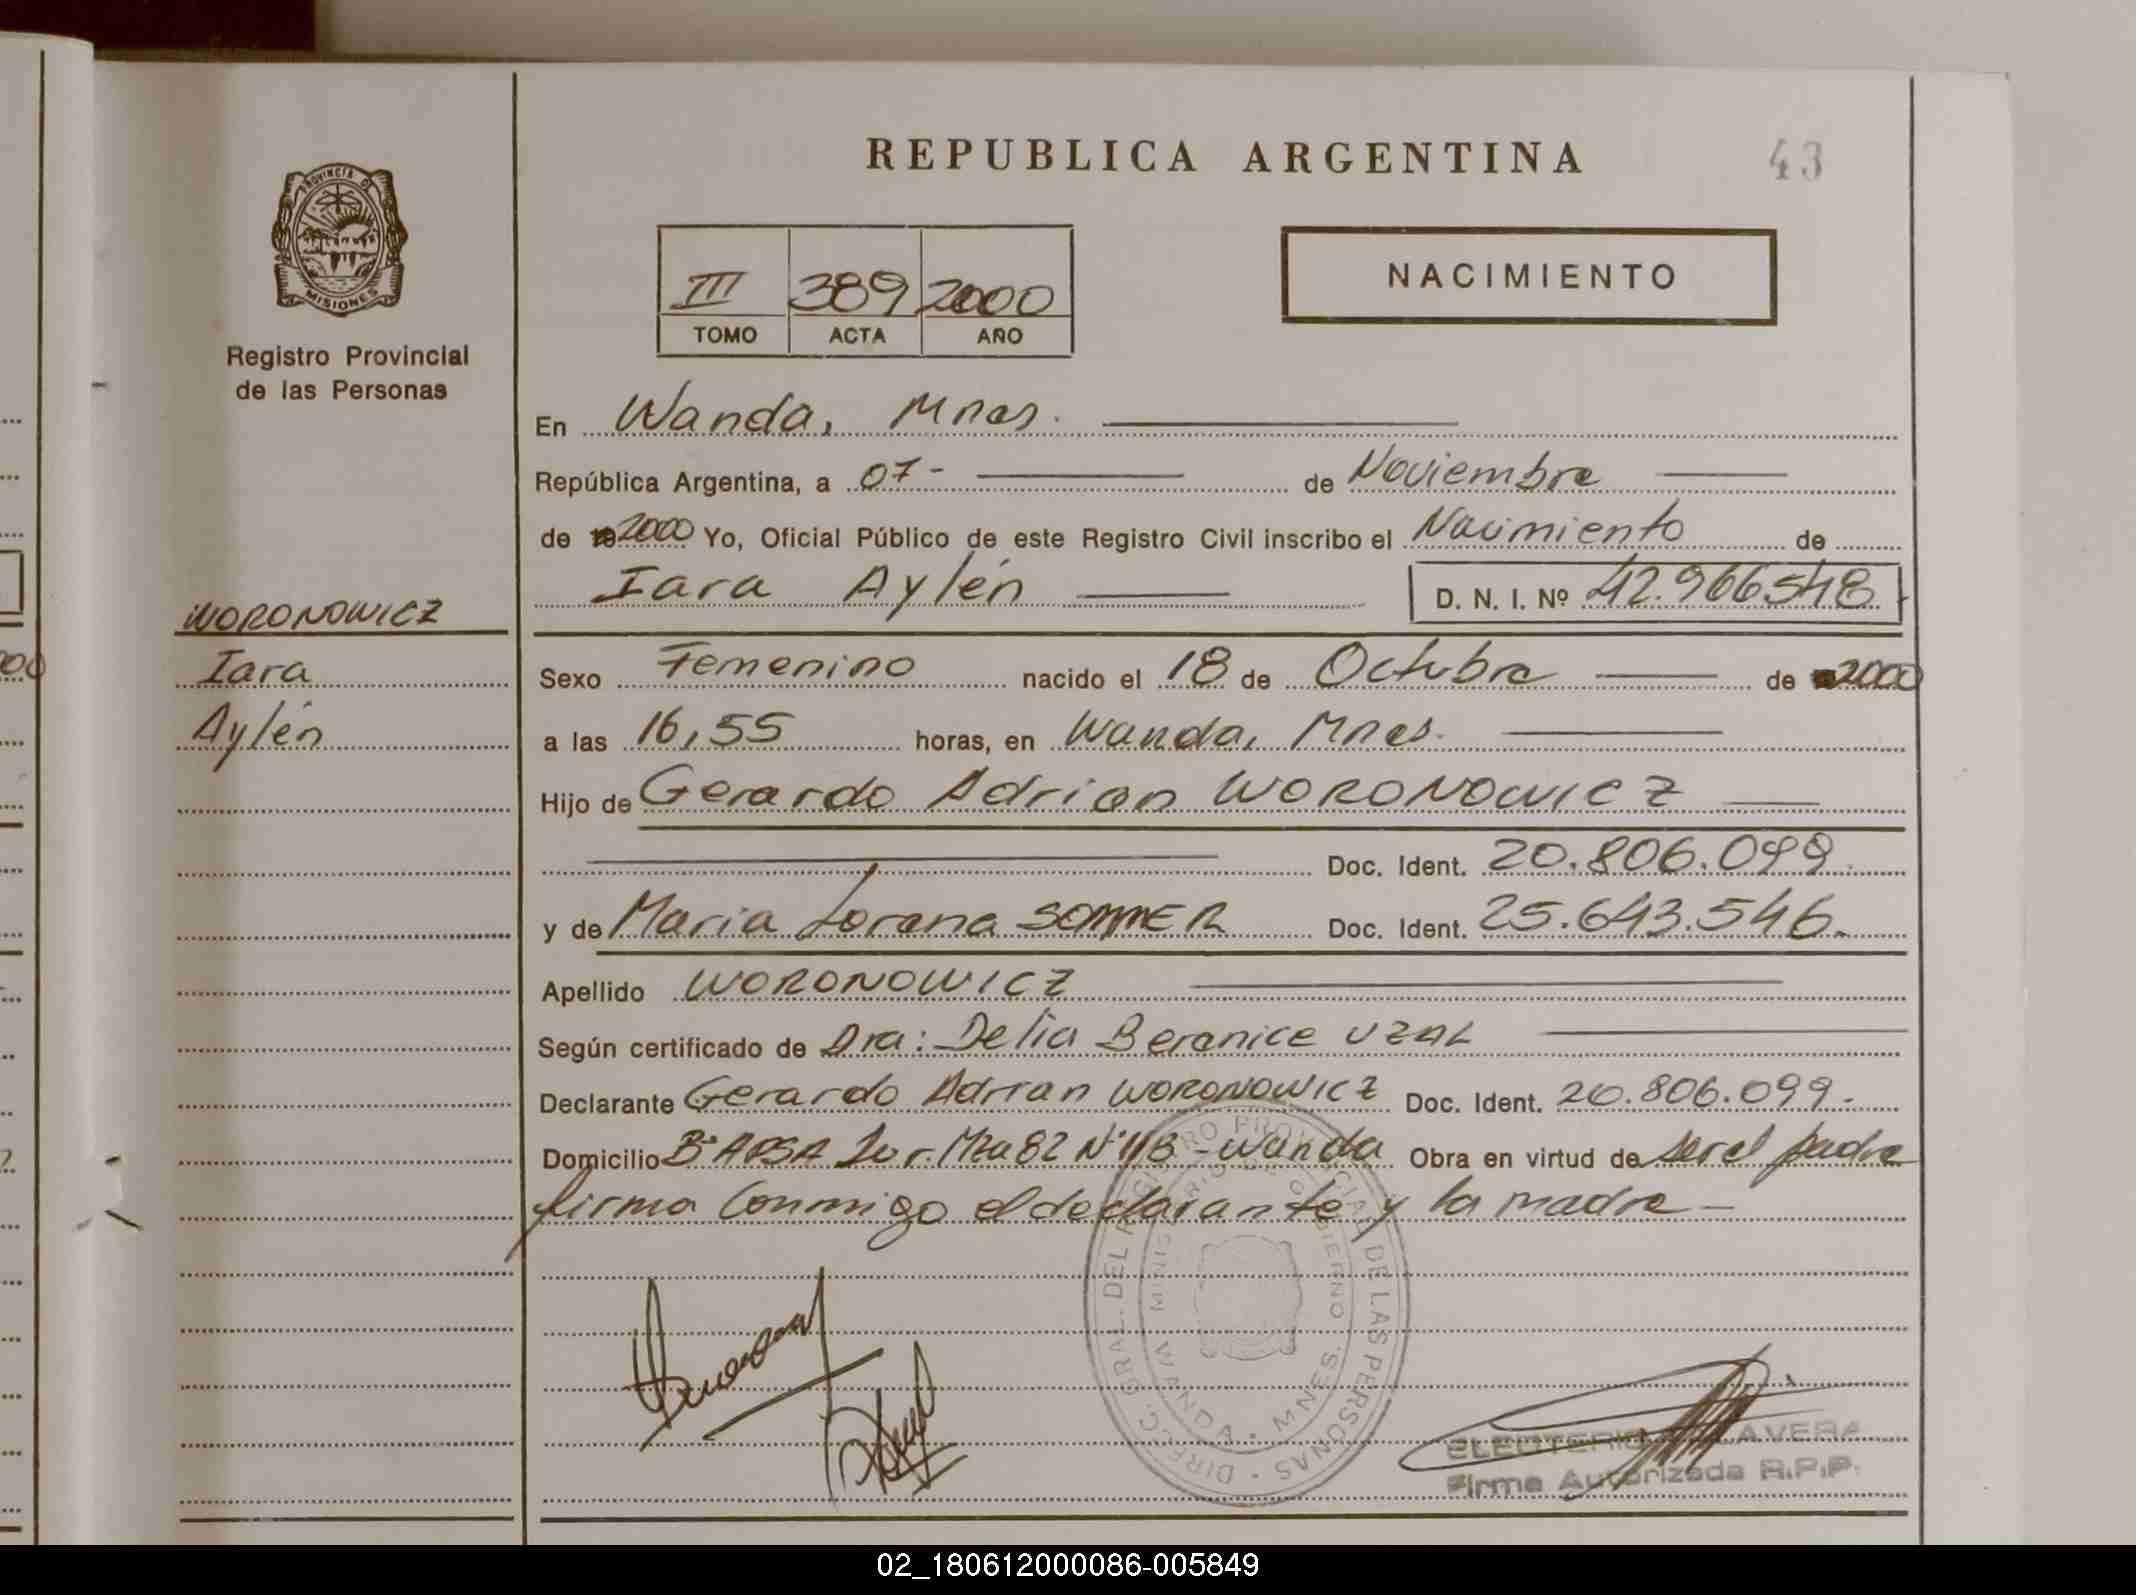 REPUBLICA ARGENTINA
43
PROVINCIA DE
MISIONES
Registro Provincial
de las Personas
III 389 2000
TOMO ACTA AÑO
NACIMIENTO
En Wanda, Mnes.
República Argentina, a 07- de Noviembre
de 2000 Yo, Oficial Público de este Registro Civil inscribo el Nacimiento de
Iara Aylén D. N. I. Nº 42.966548
WORONOWICZ
Iara
Aylén
Sexo Femenino nacido el 18 de Octubre de 2000
a las 16,55 horas, en Wanda, Mnes.
Hijo de Gerardo Adrian WORONOWICZ
Doc. Ident. 20.806.099.
y de Maria Lorena SOMMER Doc. Ident. 25.643.546.
Apellido WORONOWICZ
Según certificado de Dra: Delia Berenice UZAL
Declarante Gerardo Adrian WORONOWICZ Doc. Ident. 20.806.099.-
Domicilio Bº APSA Mza 82 Nº 118 - Wanda Obra en virtud de ser el padre
firma conmigo el declarante y la madre -
DIRECC. GRAL. DEL REGISTRO PROVINCIAL DE LAS PERSONAS
MINISTERIO DE GOBIERNO
WANDA - MNES.
Firma Autorizada R.P.P.
02_180612000086-005849